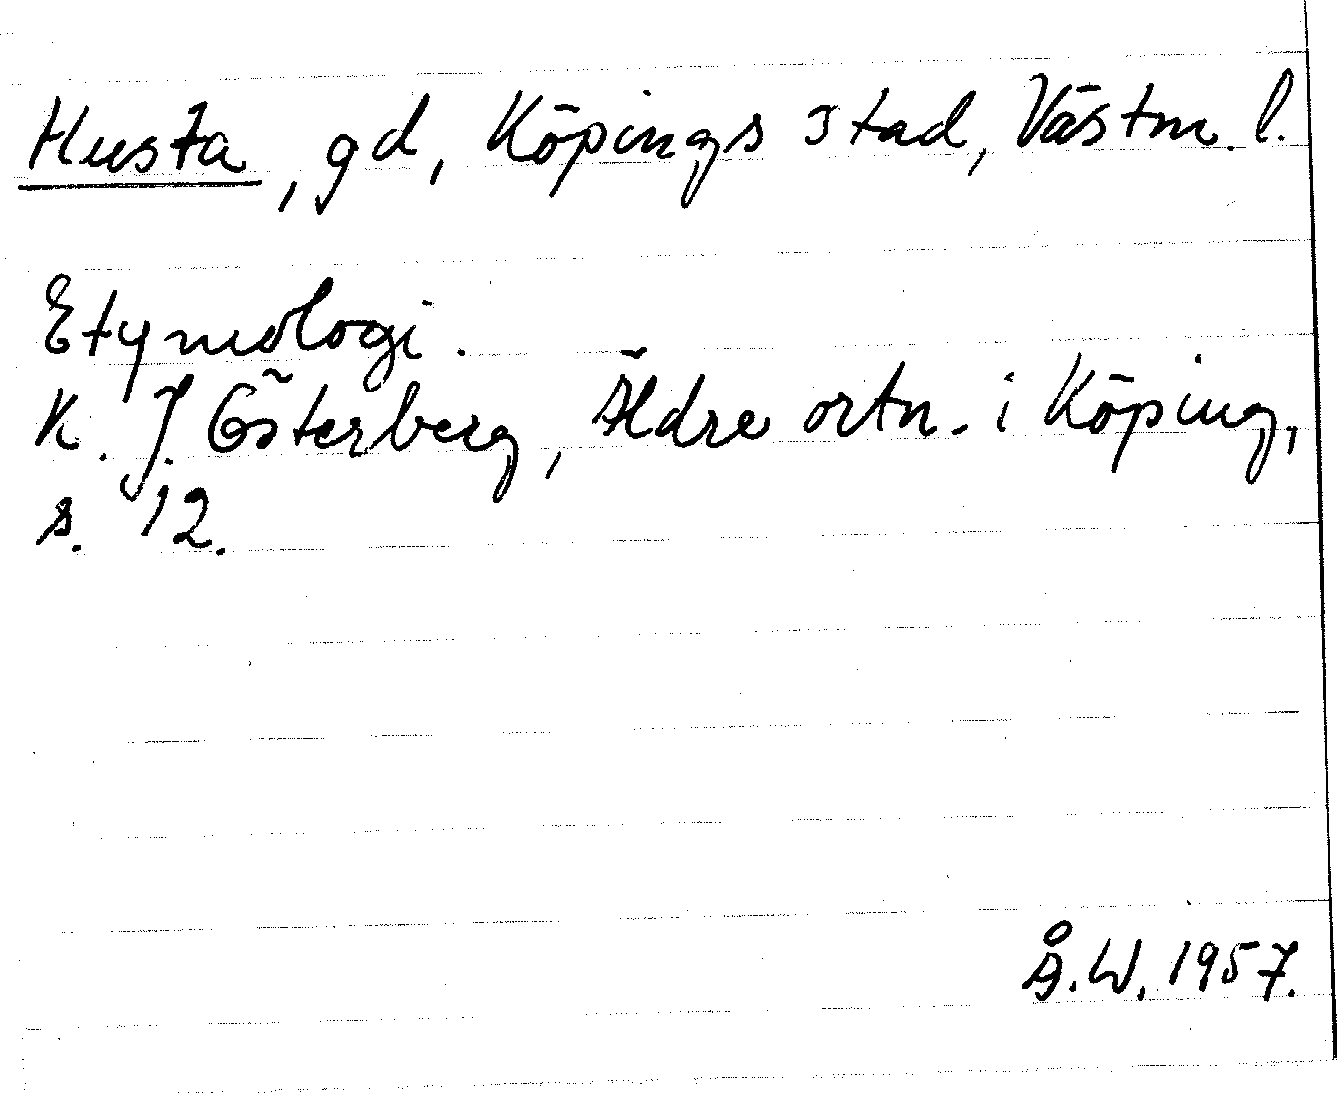 Husta, gd, Köpings stad, Västm. l.
Etymologi.
K. J. Österberg, Äldre ortn. i Köping,
s. 12.
Å. W. 1957.